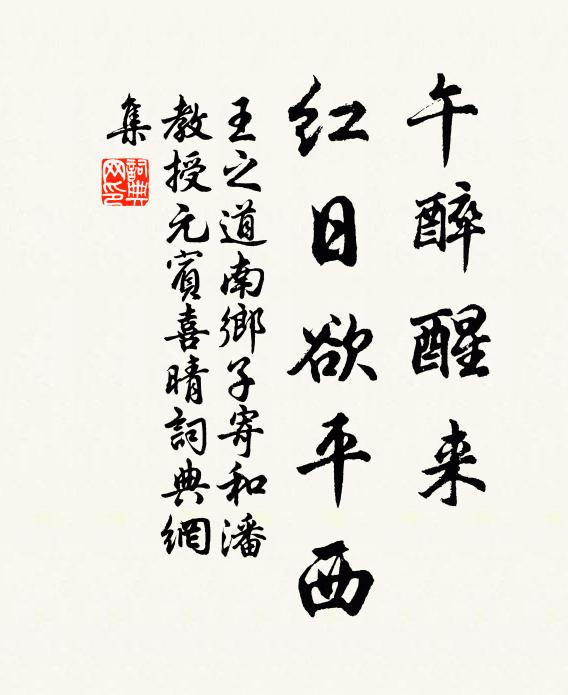 午醉醒来
红日欲平西
王之道南鄉子寄和潘
教授元賓喜晴詞典網
集
詞典网印